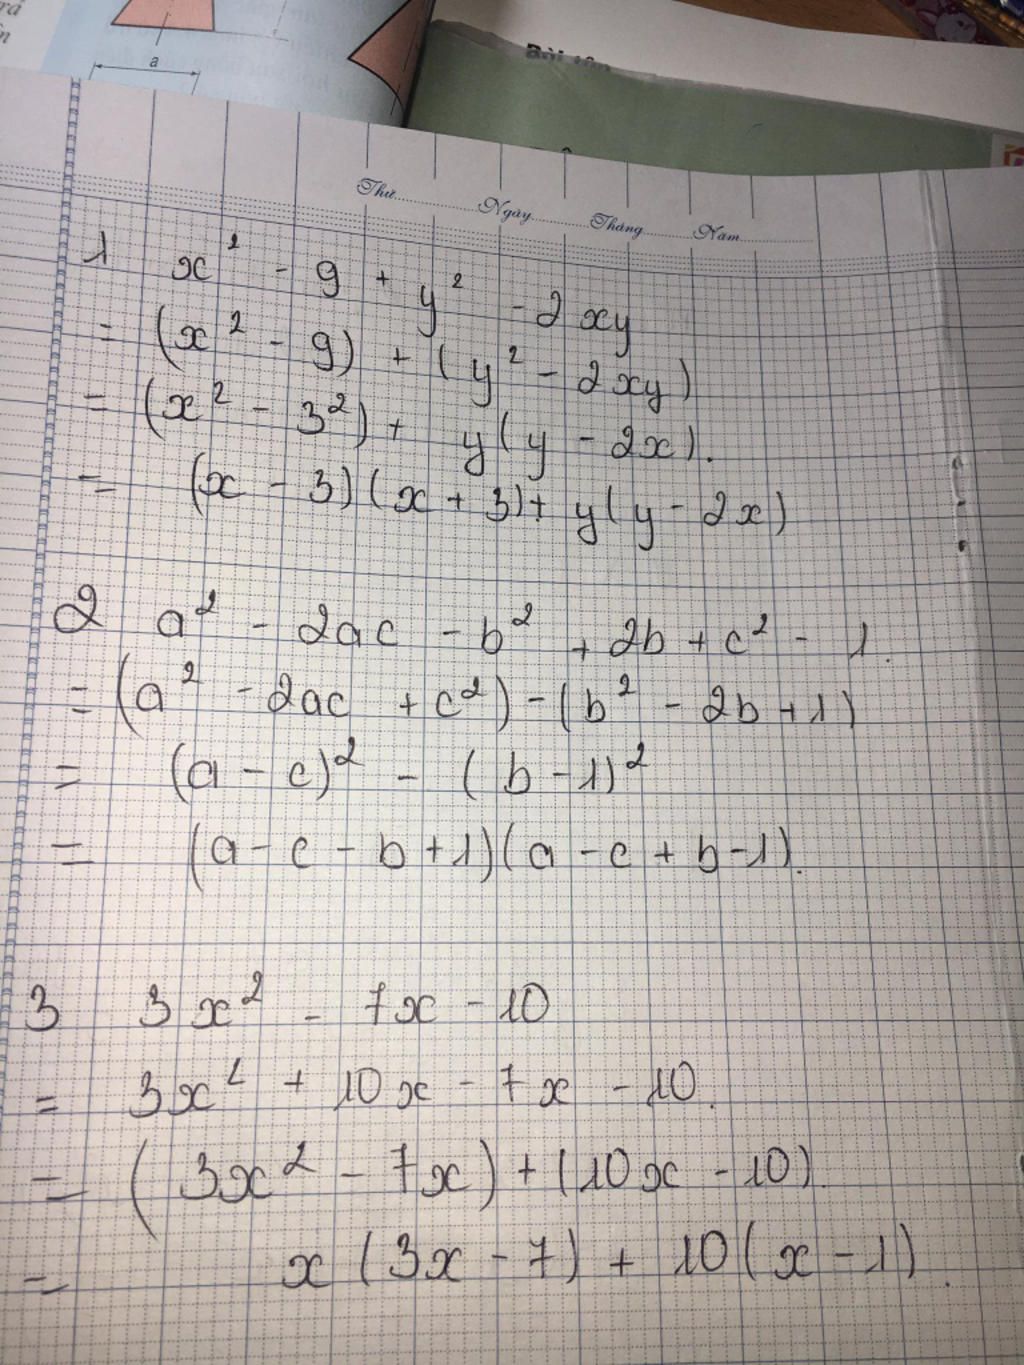 a
Bài tập
Thứ Ngày Tháng Năm
1 x² - 9 + y² - 2xy
= (x² - 9) + (y² - 2xy)
= (x² - 3²) + y(y - 2x).
= (x - 3)(x + 3) + y(y - 2x)
2 a² - 2ac - b² + 2b + c² - 1.
= (a² - 2ac + c²) - (b² - 2b + 1)
= (a - c)² - (b - 1)²
= (a - c - b + 1)(a - c + b - 1).
3 3x² - 7x - 10
= 3x² + 10x - 7x - 10.
= (3x² - 7x) + (10x - 10).
= x(3x - 7) + 10(x - 1).